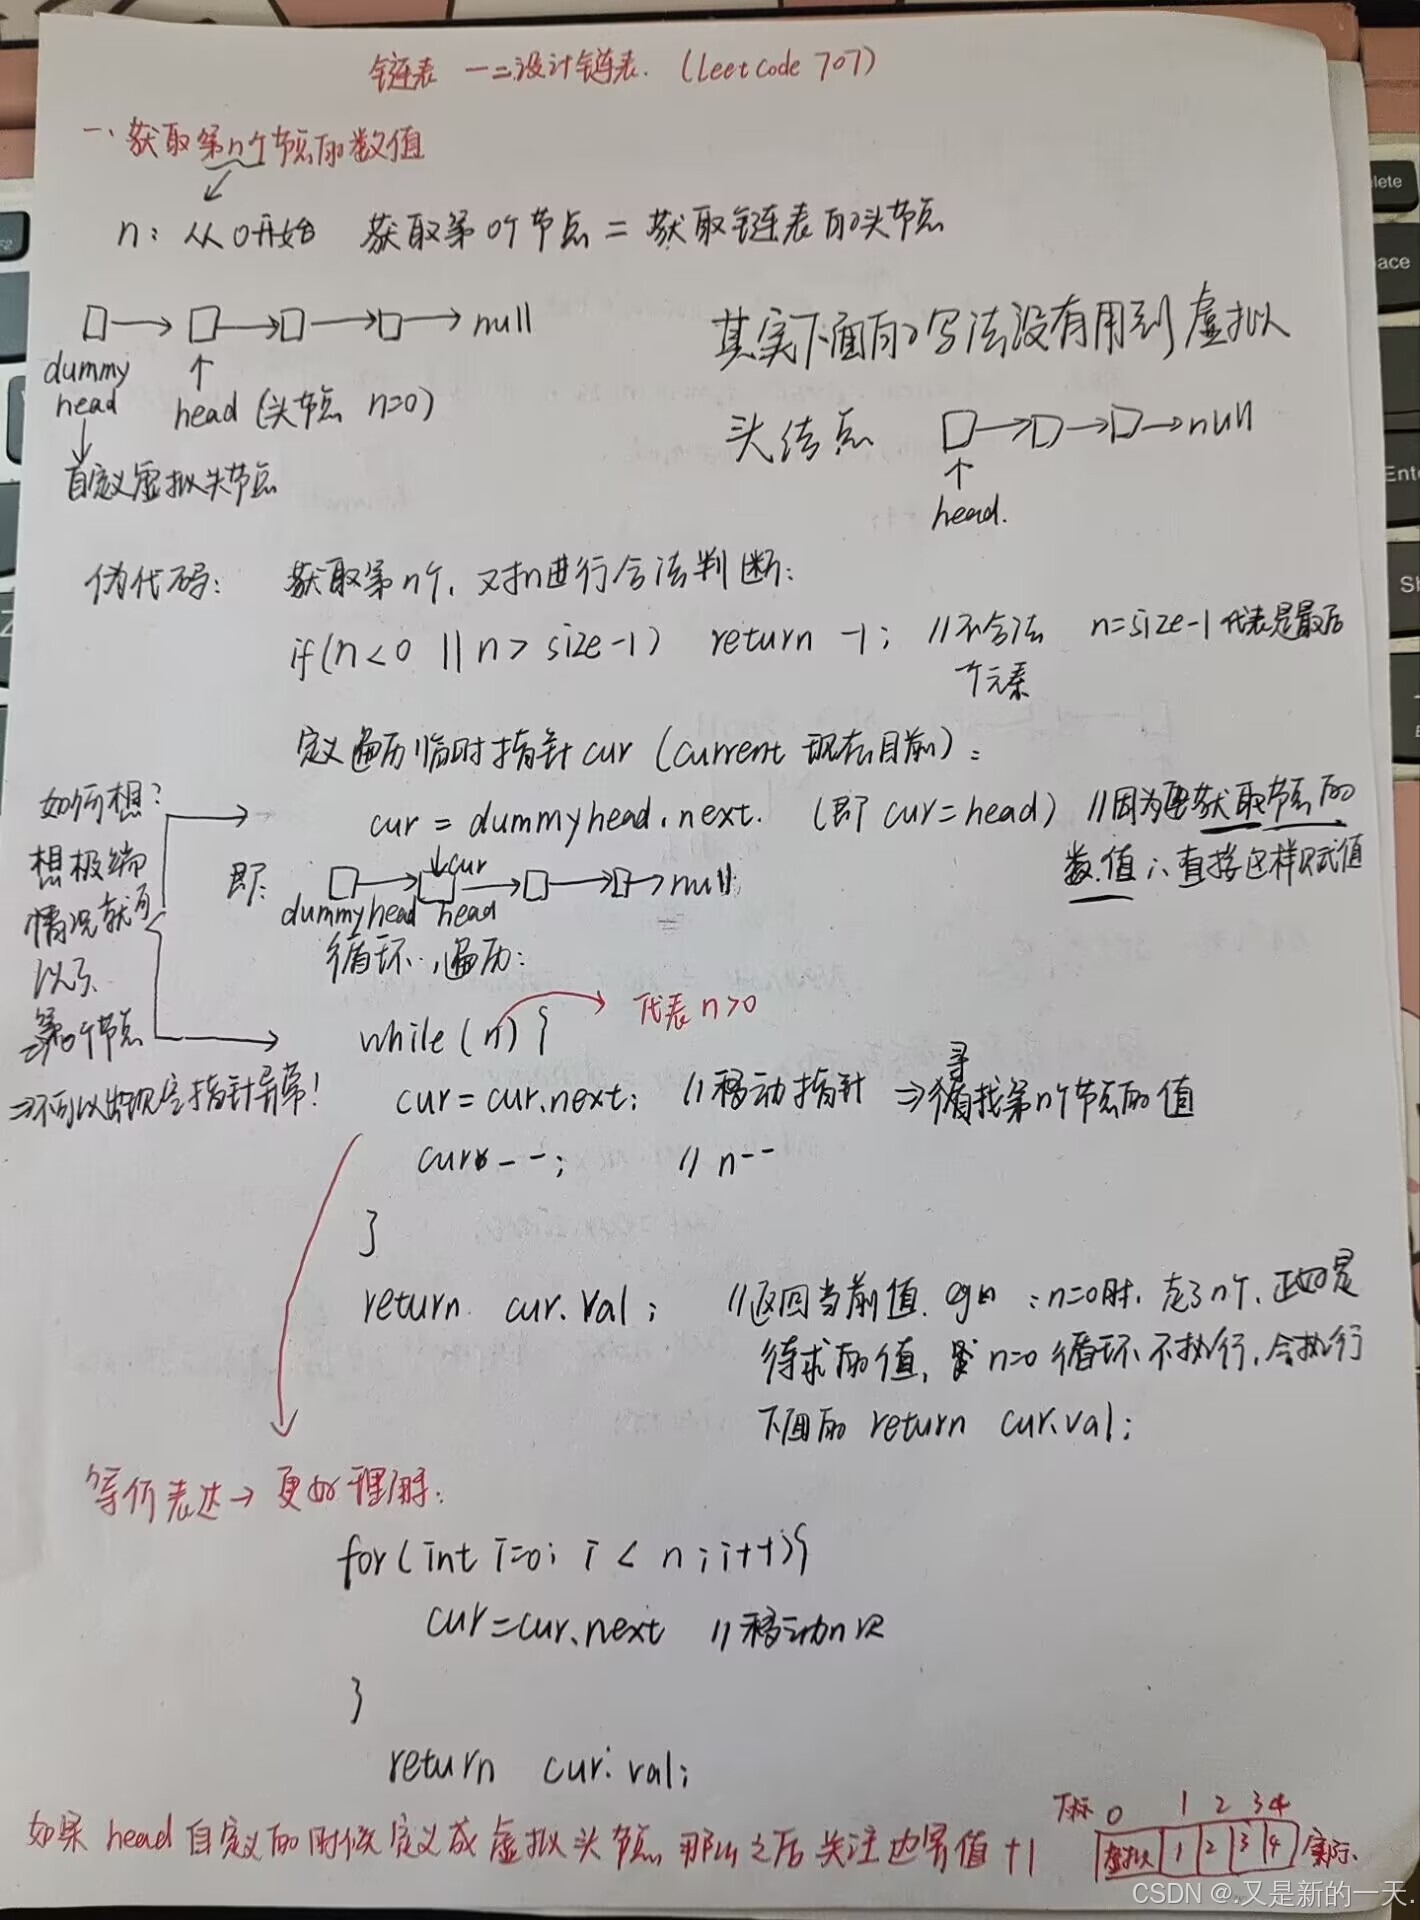 链表 一二设计链表. (leetcode 707)
一、获取第n个节点的数值
n: 从0开始 获取第0个节点 = 获取链表的头节点
null
dummy head
head (头节点 n=0)
自定义虚拟头节点
其实下面的写法没有用到虚拟
头结点 null
head.
伪代码: 获取第n个, 对n进行合法判断:
if(n<0 || n> size-1) return -1; //不合法 n=size-1代表是最后
个元素
定义遍历临时指针 cur (current 现在目前):
cur = dummyhead.next. (即 cur=head) //因为要获取节点的
数值 ∴直接这样赋值
如何想?
想极端
情况就可
以了
第0个节点
⇒不可以出现空指针异常!
即:
cur
null
dummyhead head
循环,遍历:
while(n){ 代表 n>0
cur=cur.next; //移动指针 ⇒寻找第n个节点的值
cur--; // n--
}
return cur.val; //返回当前值. : n=0时, 走了n个, 正好是
待求的值, n=0循环不执行,会执行
下面的 return cur.val;
等价表达→更好理解:
for(int i=0; i < n; i++){
cur=cur.next //移动n次
}
return cur.val;
如果 head 自定义的时候定义成虚拟头节点 那么之后关注边界值+1
下标 0 1 2 3 4
虚拟 1 2 3 4 实际.
CSDN @.又是新的一天.